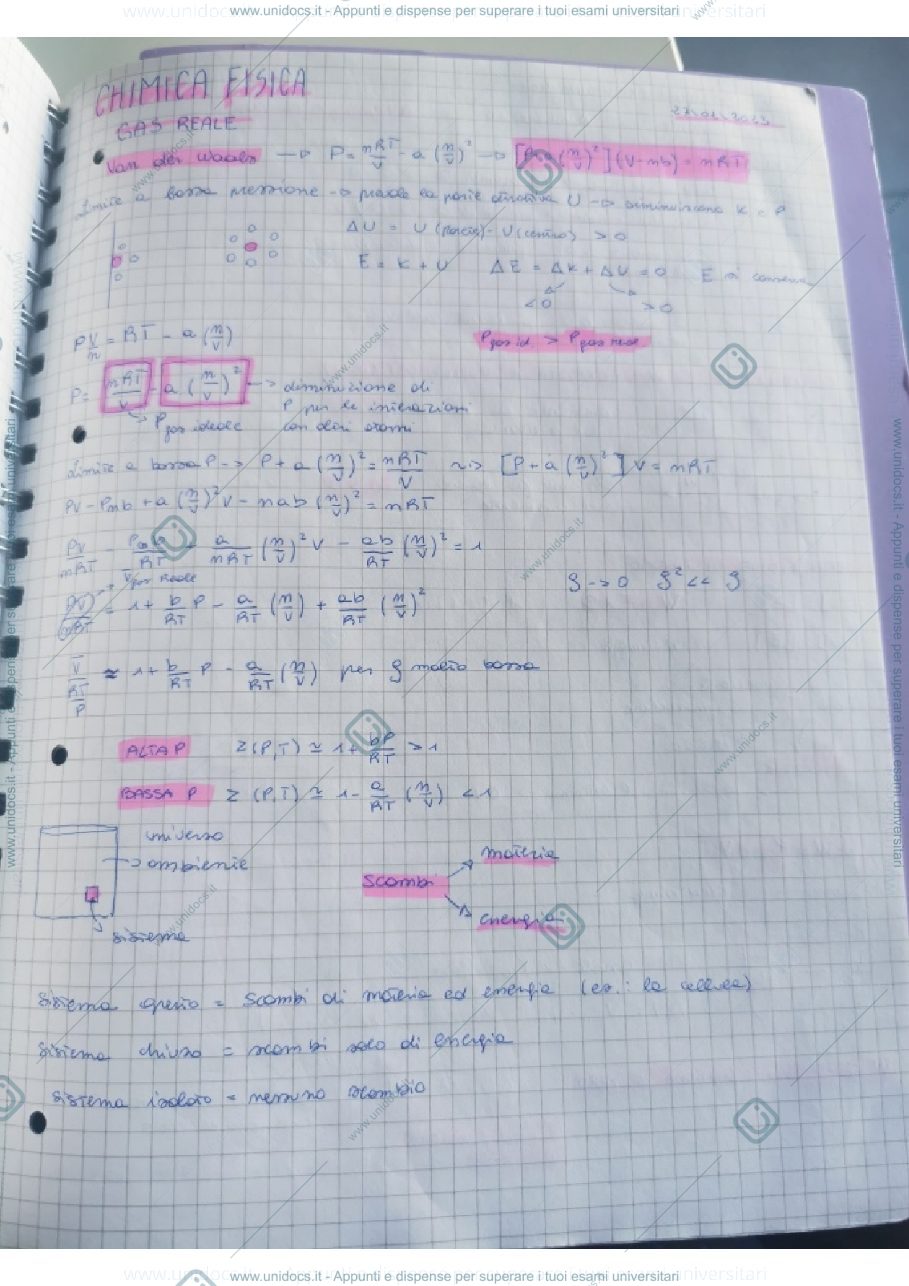 www.unidocs.it - Appunti e dispense per superare i tuoi esami universitari
CHIMICA FISICA
GAS REALE
Van der Waals → P = nRT/V - a (n/V)² → [P + a (n/V)²] (V - nb) = nRT
Limite a bassa pressione → prevale la parte attrattiva U → diminuiscono K e P
ΔU = U (parete) - U (centro) > 0
E = K + U ΔE = ΔK + ΔU = 0 E si conserva
< 0 > 0
P V/n = RT - a (n/V)
P gas id > P gas reale
P = nRT/V - a (n/V)² → diminuzione di
P per le interazioni
con altri atomi
P gas ideale
Limite a bassa P → P + a (n/V)² = nRT/V ~> [P + a (n/V)²] V = nRT
PV - Pnb + a (n/V)² V - nab (n/V)² = nRT
PV/nRT - Pnb/nRT + a/nRT (n/V)² V - ab/RT (n/V)² = 1
V̄ gas reale
ρ → 0 ρ² << ρ
PV/nRT = 1 + b/RT P - a/RT (n/V) + ab/RT (n/V)²
V̄/(RT/P) ≈ 1 + b/RT P - a/RT (n/V) per ρ molto bassa
ALTA P Z (P,T) ≃ 1 + bP/RT > 1
BASSA P Z (P,T) ≃ 1 - a/RT (n/V) < 1
universo
→ ambiente
sistema
Scambi
materia
energia
Sistema aperto = Scambi di materia ed energia (es.: la cellula)
Sistema chiuso = scambi solo di energia
Sistema isolato = nessuno scambio
www.unidocs.it - Appunti e dispense per superare i tuoi esami universitari